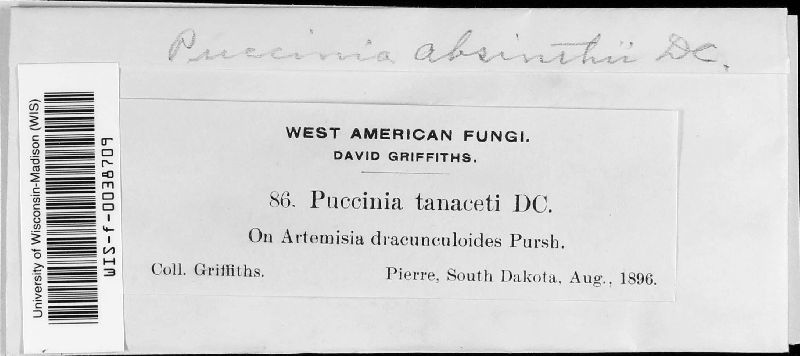 Puccinia absinthii DC.
University of Wisconsin-Madison (WIS)
WIS-f-0038709
WEST AMERICAN FUNGI.
DAVID GRIFFITHS.
86. Puccinia tanaceti DC.
On Artemisia dracunculoides Pursh.
Coll. Griffiths. Pierre, South Dakota, Aug., 1896.